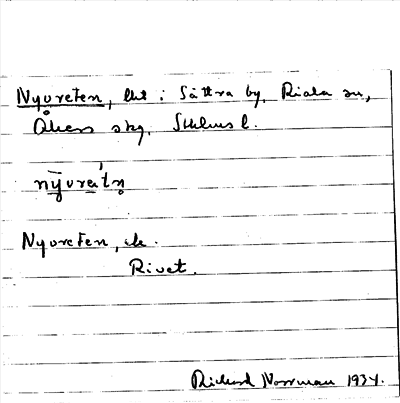 Nyvreten, lht i Sättra by, Riala sn,
Åkers skg, Sthlms l.
nyvre̱tn̥
Nyvreten, äk.
Rivet.
Richard Norrman 1934.